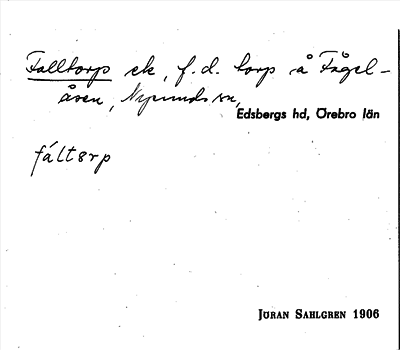 Falltorp ek, f.d. torp å Fågel-
åsen, Nysunds sn,
Edsbergs hd, Örebro län
fáltɜrp
JÖRAN SAHLGREN 1906